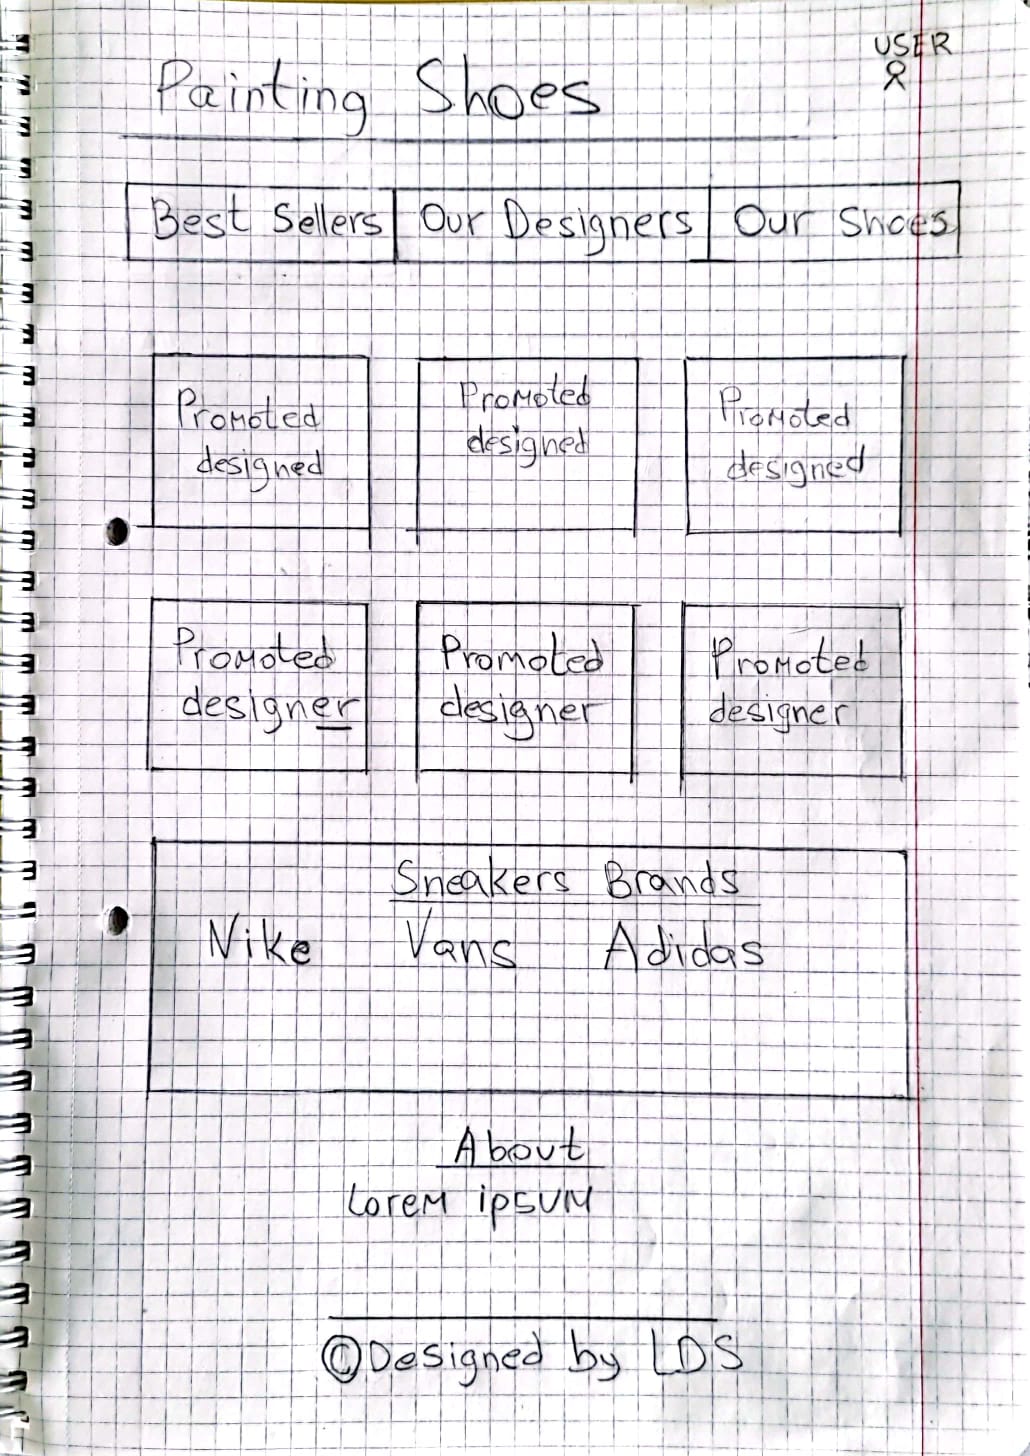 USER
Painting Shoes
Best Sellers Our Designers Our Shoes
Promoted designed
Promoted designed
Promoted designed
Promoted designer
Promoted designer
Promoted designer
Sneakers Brands
Nike Vans Adidas
About
Lorem ipsum
©Designed by LDS